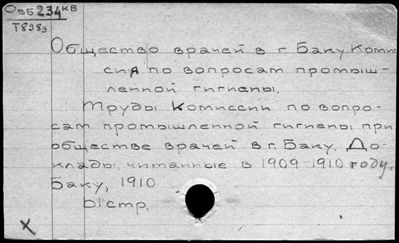 ОвБ 234 кв
Т898э
Общество врачей в г Баку Комис
сия по вопросам промыш-
ленной гигиены.
Труды Комиссии по вопро-
сам промышленной гигиены при
обществе врачей в г. Баку. До-
клады, читанные в 1909-1910 году.
Баку, 1910
стр.